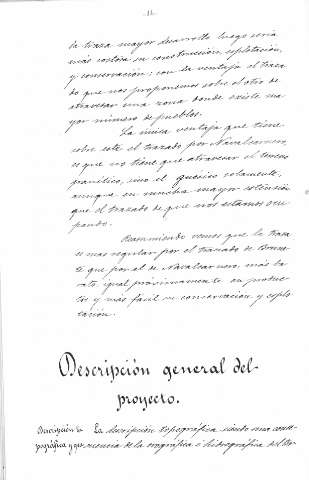 -11-
la traza mayor desarrollo luego seria
más costosa su construccion, esplotación,
y conservación; con la ventaja el traza
do que nos proponemos sobre el otro de
atravesar una zona donde existe ma
yor número de pueblos.
La única ventaja que tiene
sobre este el trazado por Navalcarnero,
es que no tiene que atravesar el terreno
granítico, sino el gneísico solamente,
aunque en mucha mayor estensión
que el trazado de que nos estamos ocu
pando.
Resumiendo vemos que la traza
es mas regular por el trazado de Brune
te que por el de Navalcarnero, más ba
rato, igual próximamente en produc
tos y más fácil su conservacion y esplo
tación.
Descripción general del
proyecto.
Descripción to
pográfica y geo
La descripción topográfica siendo una conse
cuencia de la orográfica é hidrográfica del te